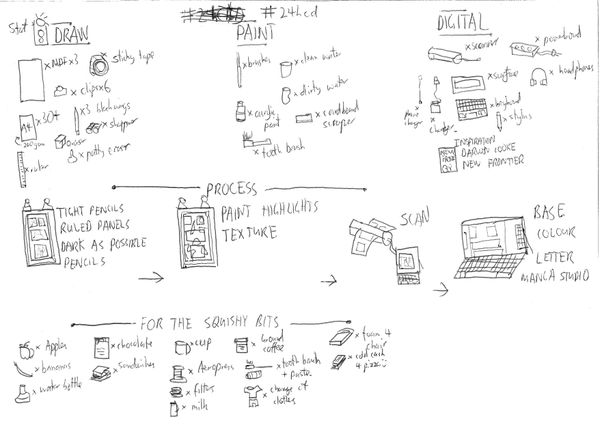 Start
DRAW
#24hcd
PAINT
DIGITAL
x MDF x3
x sticky tape
x clips x6
x 30+
A4
200gsm
x3 blackwings
x sharpener
x eraser
x putty eraser
x ruler
x brushes
x clean water
x dirty water
x acrylic paint
x cardboard scraper
x tooth brush
x scanner
x powerboard
x phone charger
x charger
x surface
x headphones
x keyboard
x stylus
INSPIRATION
DARWYN COOKE
NEW FRONTIER
PROCESS
TIGHT PENCILS
RULED PANELS
DARK AS POSSIBLE
PENCILS
PAINT HIGHLIGHTS
TEXTURE
SCAN
BASE
COLOUR
LETTER
MANGA STUDIO
FOR THE SQUISHY BITS
x Apples
x bananas
x water bottle
x chocolate
x sandwiches
x cup
x Aeropress
x filters
x milk
x ground coffee
x tooth brush + paste
x change of clothes
x train 4
x cold cash 4 pizza